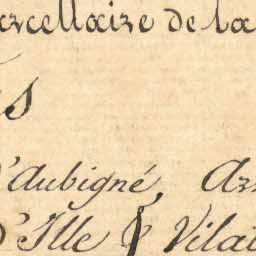 arcellaire de la
s
d'Aubigné, Ar
D'Ille & Vila